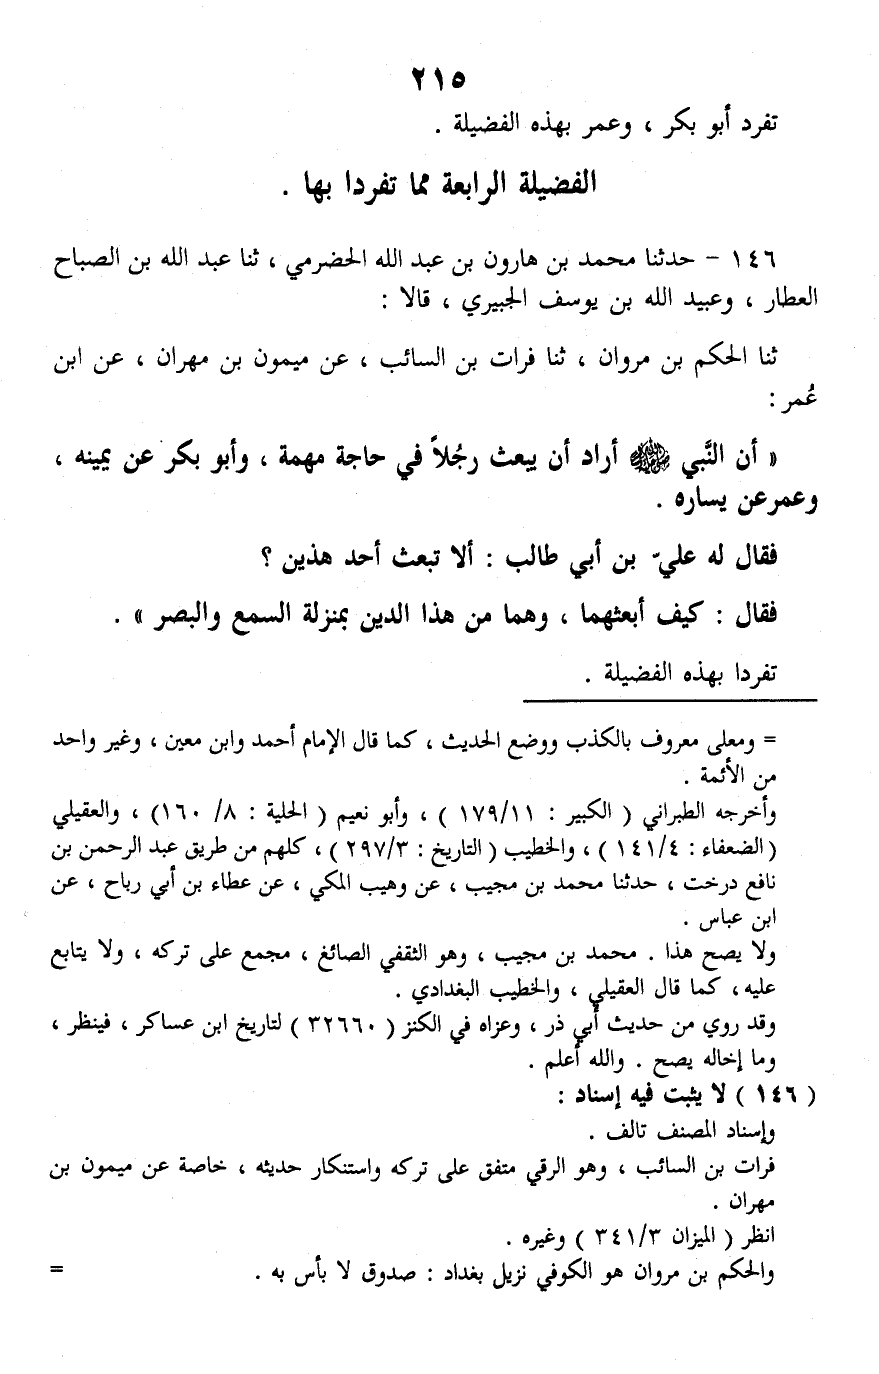 ٢١٥
تفرد أبو بكر ، وعمر بهذه الفضيلة .
الفضيلة الرابعة مما تفردا بها .
١٤٦ - حدثنا محمد بن هارون بن عبد الله الحضرمي ، ثنا عبد الله بن الصباح
العطار ، وعبيد الله بن يوسف الجبيري ، قالا :
ثنا الحكم بن مروان ، ثنا فرات بن السائب ، عن ميمون بن مهران ، عن ابن
عُمر :
« أن النَّبي ﷺ أراد أن يبعث رجُلاً في حاجة مهمة ، وأبو بكر عن يمينه ،
وعمر عن يساره .
فقال له عليّ بن أبي طالب : ألا تبعث أحد هذين ؟
فقال : كيف أبعثهما ، وهما من هذا الدين بمنزلة السمع والبصر » .
تفردا بهذه الفضيلة .
= ومعلى معروف بالكذب ووضع الحديث ، كما قال الإمام أحمد وابن معين ، وغير واحد
من الأئمة .
وأخرجه الطبراني ( الكبير : ١٧٩/١١ ) ، وأبو نعيم ( الحلية : ٨/ ١٦٠) ، والعقيلي
( الضعفاء : ١٤١/٤ ) ، والخطيب ( التاريخ : ٢٩٧/٣ ) ، كلهم من طريق عبد الرحمن بن
نافع درخت ، حدثنا محمد بن مجيب ، عن وهيب المكي ، عن عطاء بن أبي رباح ، عن
ابن عباس .
ولا يصح هذا . محمد بن مجيب ، وهو الثقفي الصائغ ، مجمع على تركه ، ولا يتابع
عليه ، كما قال العقيلي ، والخطيب البغدادي .
وقد روي من حديث أبي ذر ، وعزاه في الكنز ( ٣٢٦٦٠ ) لتاريخ ابن عساكر ، فينظر ،
وما إخاله يصح . والله أعلم .
( ١٤٦ ) لا يثبت فيه إسناد :
وإسناد المصنف تالف .
فرات بن السائب ، وهو الرقي متفق على تركه واستنكار حديثه ، خاصة عن ميمون بن
مهران .
انظر ( الميزان ٣٤١/٣ ) وغيره .
والحكم بن مروان هو الكوفي نزيل بغداد : صدوق لا بأس به . =